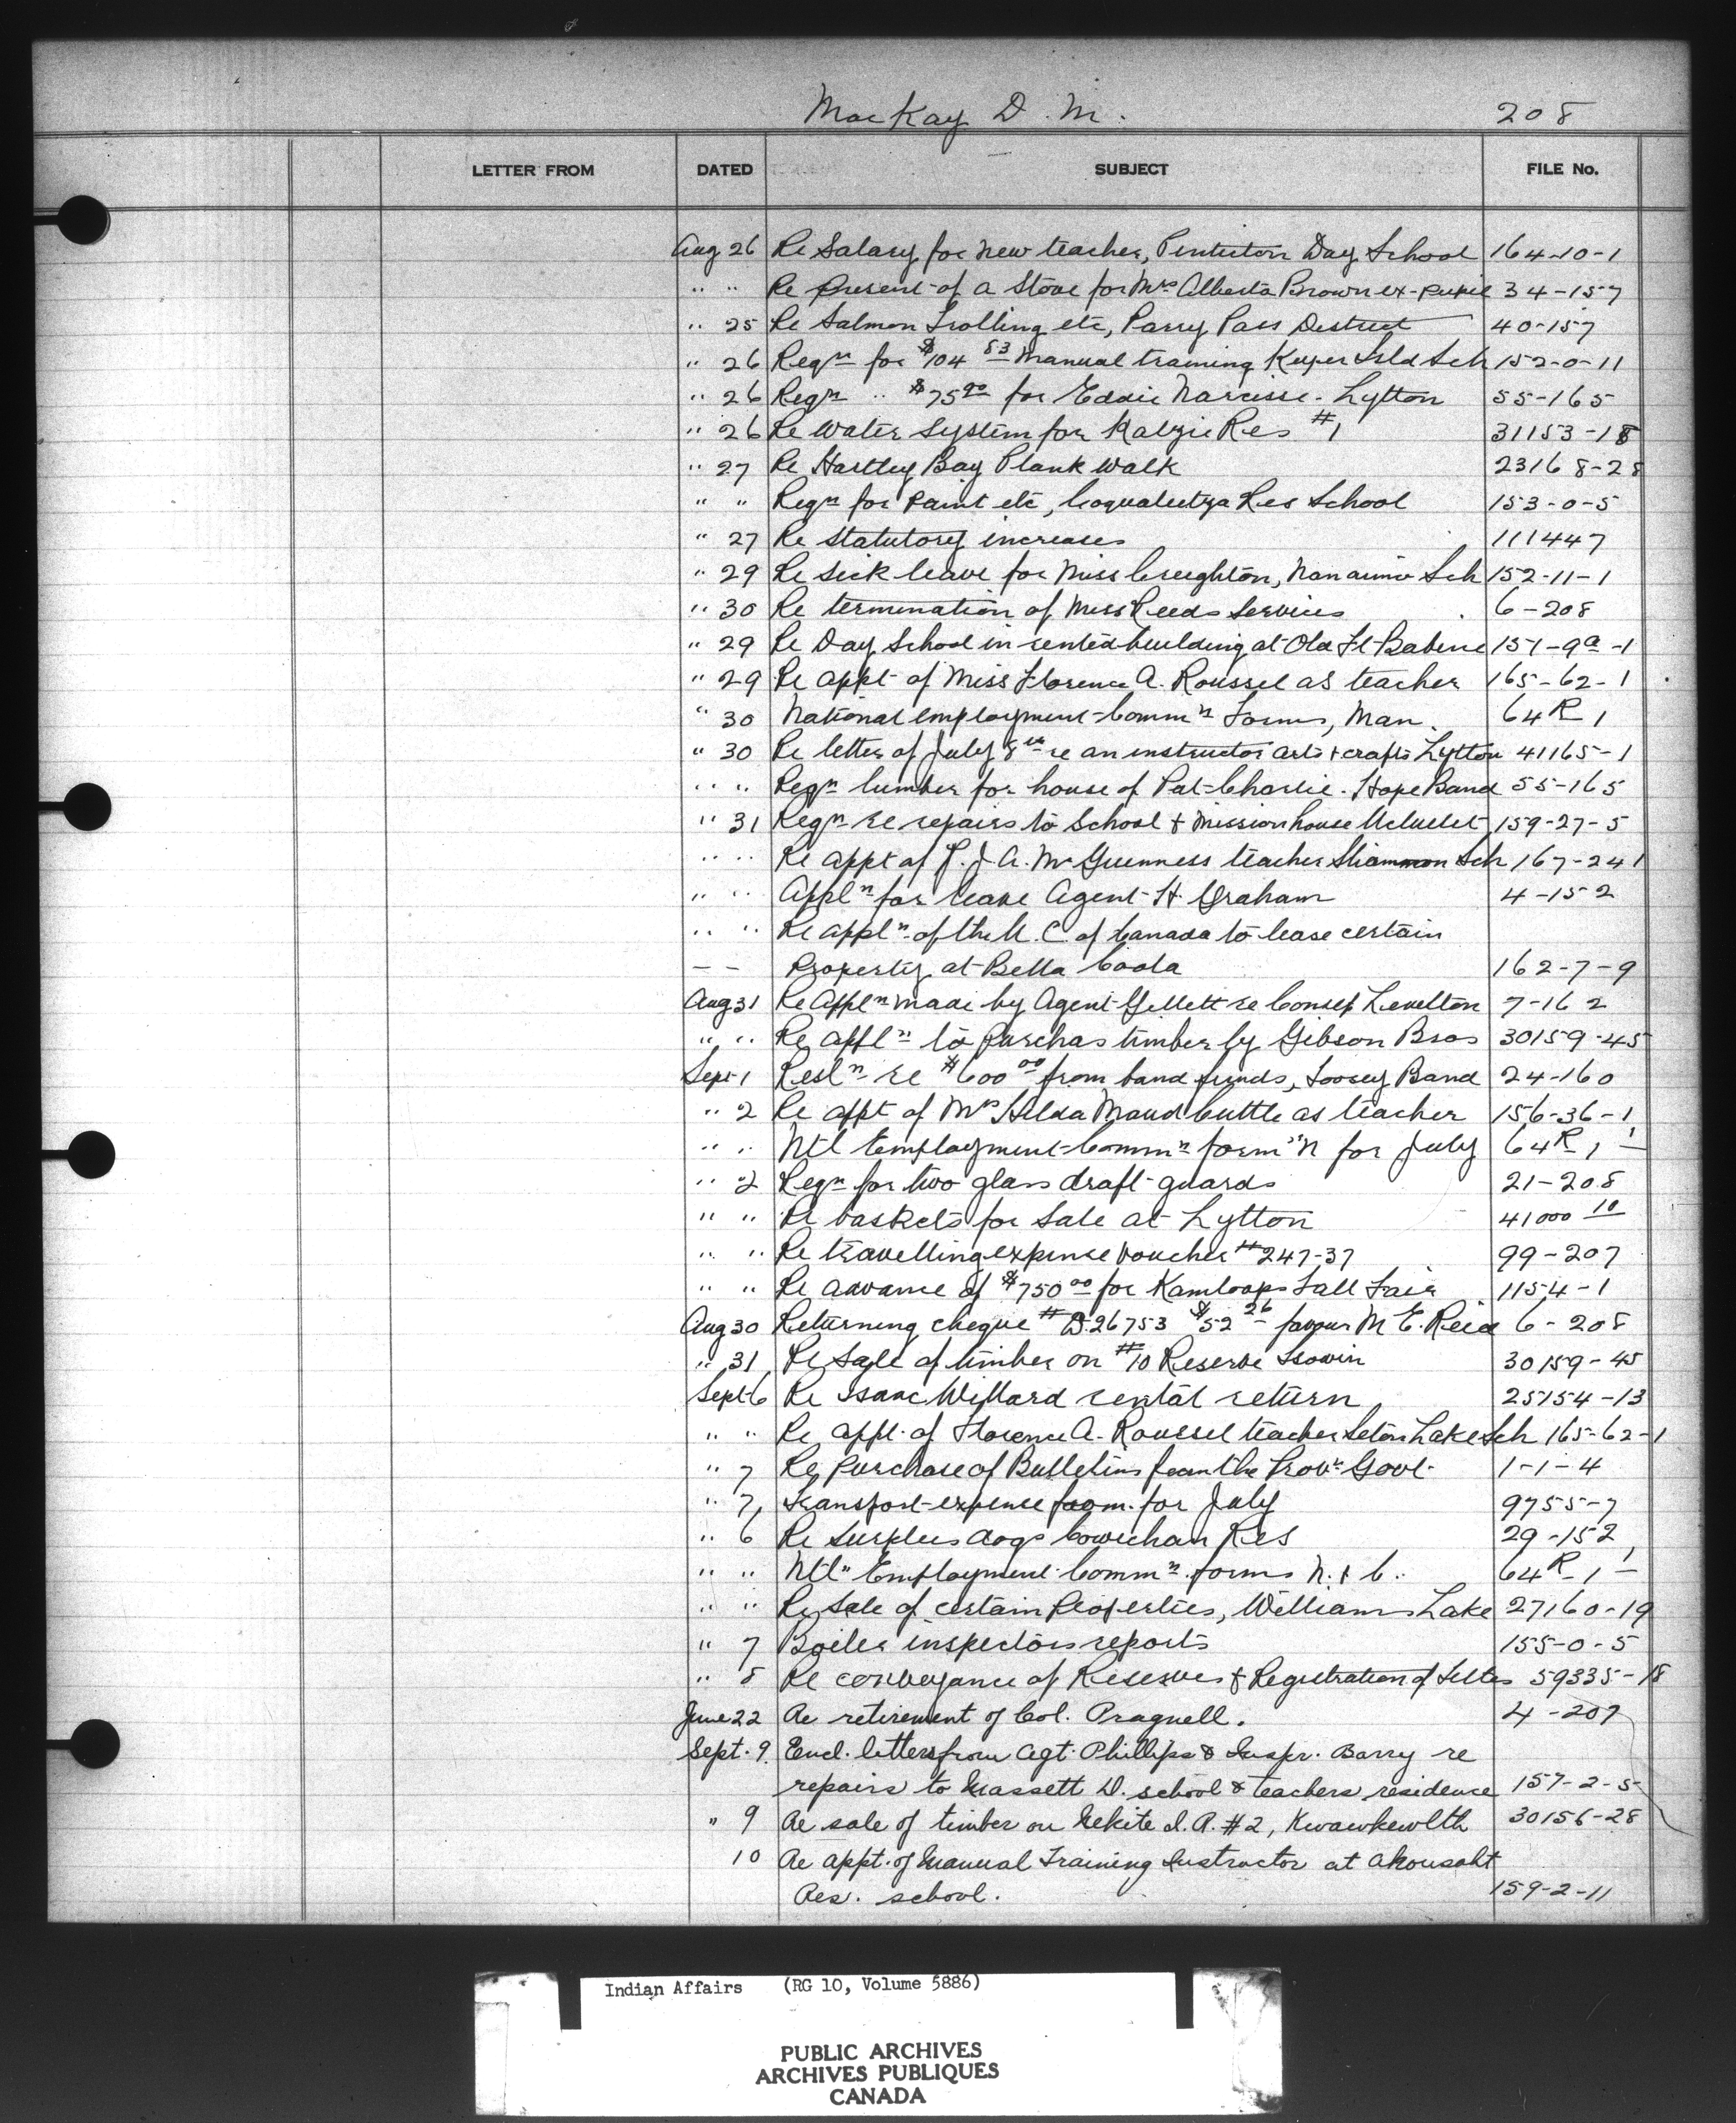 MacKay D. M. 208
LETTER FROM DATED SUBJECT FILE No.
Aug 26 Re Salary for new teacher, Penticton Day School 164-10-1
" " Re present of a Stove for Mrs Alberta Brown ex-pupil 34-157
" 25 Re Salmon Trolling etc, Parry Pass District 40-157
" 26 Reqn for $104 83 Manual training Kuper Isld Sch 152-0-11
" 26 Reqn " $75 00 for Eddie Narcisse - Lytton 55-165
" 26 Re Water System for Katzie Res #1 31153-18
" 27 Re Hartley Bay Plank Walk 23168-28
" " Reqn for Paint etc, Coqualeetza Res School 153-0-5
" 27 Re Statutory increases 111447
" 29 Re Sick leave for Miss Creighton, Nanaimo Sch 152-11-1
" 30 Re termination of Miss Reeds Services 6-208
" 29 Re Day School in rented building at Old Ft Babine 151-9a-1
" 29 Re appt of Miss Florence A. Roussel as teacher 165-62-1
" 30 National Employment Commn Forms, Man. 64 R 1
" 30 Re letter of July 8th re an instructor arts & crafts Lytton 41165-1
" " Reqn lumber for house of Pat Charlie. Hope Band 55-165
" 31 Reqn re repairs to School & Mission house Ucluelet 159-27-5
" " Re appt of J. A. McGuenness teacher Sliammon Sch 167-241
" " Appln for leave Agent H. Graham 4-152
" " Re appln of the U. C. of Canada to lease certain
- - Property at Bella Coola 162-7-9
Aug 31 Re Appln made by Agent Gillett re Levelton 7-162
" " Re appln to purchas timber by Gibson Bros 30159-45
Sept 1 Resln re $600 00 from band funds, Toosey Band 24-160
" 2 Re appt of Mrs Hilda Maud Cuttle as teacher 156-36-1
" " Ntl Employment Commn form N for July 64 R 1 1
" 2 Reqn for two glass draft guards 21-208
" " Re baskets for Sale at Lytton 41000 10
" " Re travelling expense voucher #247-37 99-207
" " Re advance of $750 00 for Kamloops Fall Fair 1154-1
Aug 30 Returning cheque # D.26753 $52 26 favour M. E. Reid 6-208
" 31 Re Sale of timber on #10 Reserve Tsowin 30159-45
Sept 6 Re Isaac Willard rental return 25154-13
" " Re appt. of Florence A. Roussel teacher Seton Lake Sch 165-62-1
" 7 Re Purchase of Bulletins from the Prov. Govt. 1-1-4
" 7, Transport expense for July 9755-7
" 6 Re Surplus dogs Cowichan Res 29-152
" " Ntl" Employment Commn forms N. & C. 64 R 1 1
" " Re Sale of certain Properties, Williams Lake 27160-19
" 7 Boiler inspectors reports 155-0-5
" 8 Re conveyance of Reserves & Registration of Titles 59335-18
June 22 Re retirement of Col. Pragnell. 4-207
Sept. 9. Encl. letters from Agt. Phillips & Inspr. Barry re
repairs to Massett D. school & teachers residence 157-2-5
" 9 Re sale of timber on Nekite I.R. #2, Kwawkewlth 30156-28
10 Re appt. of Manual Training Instructor at Ahousaht
Res. school. 159-2-11
Indian Affairs (RG 10, Volume 5886)
PUBLIC ARCHIVES
ARCHIVES PUBLIQUES
CANADA